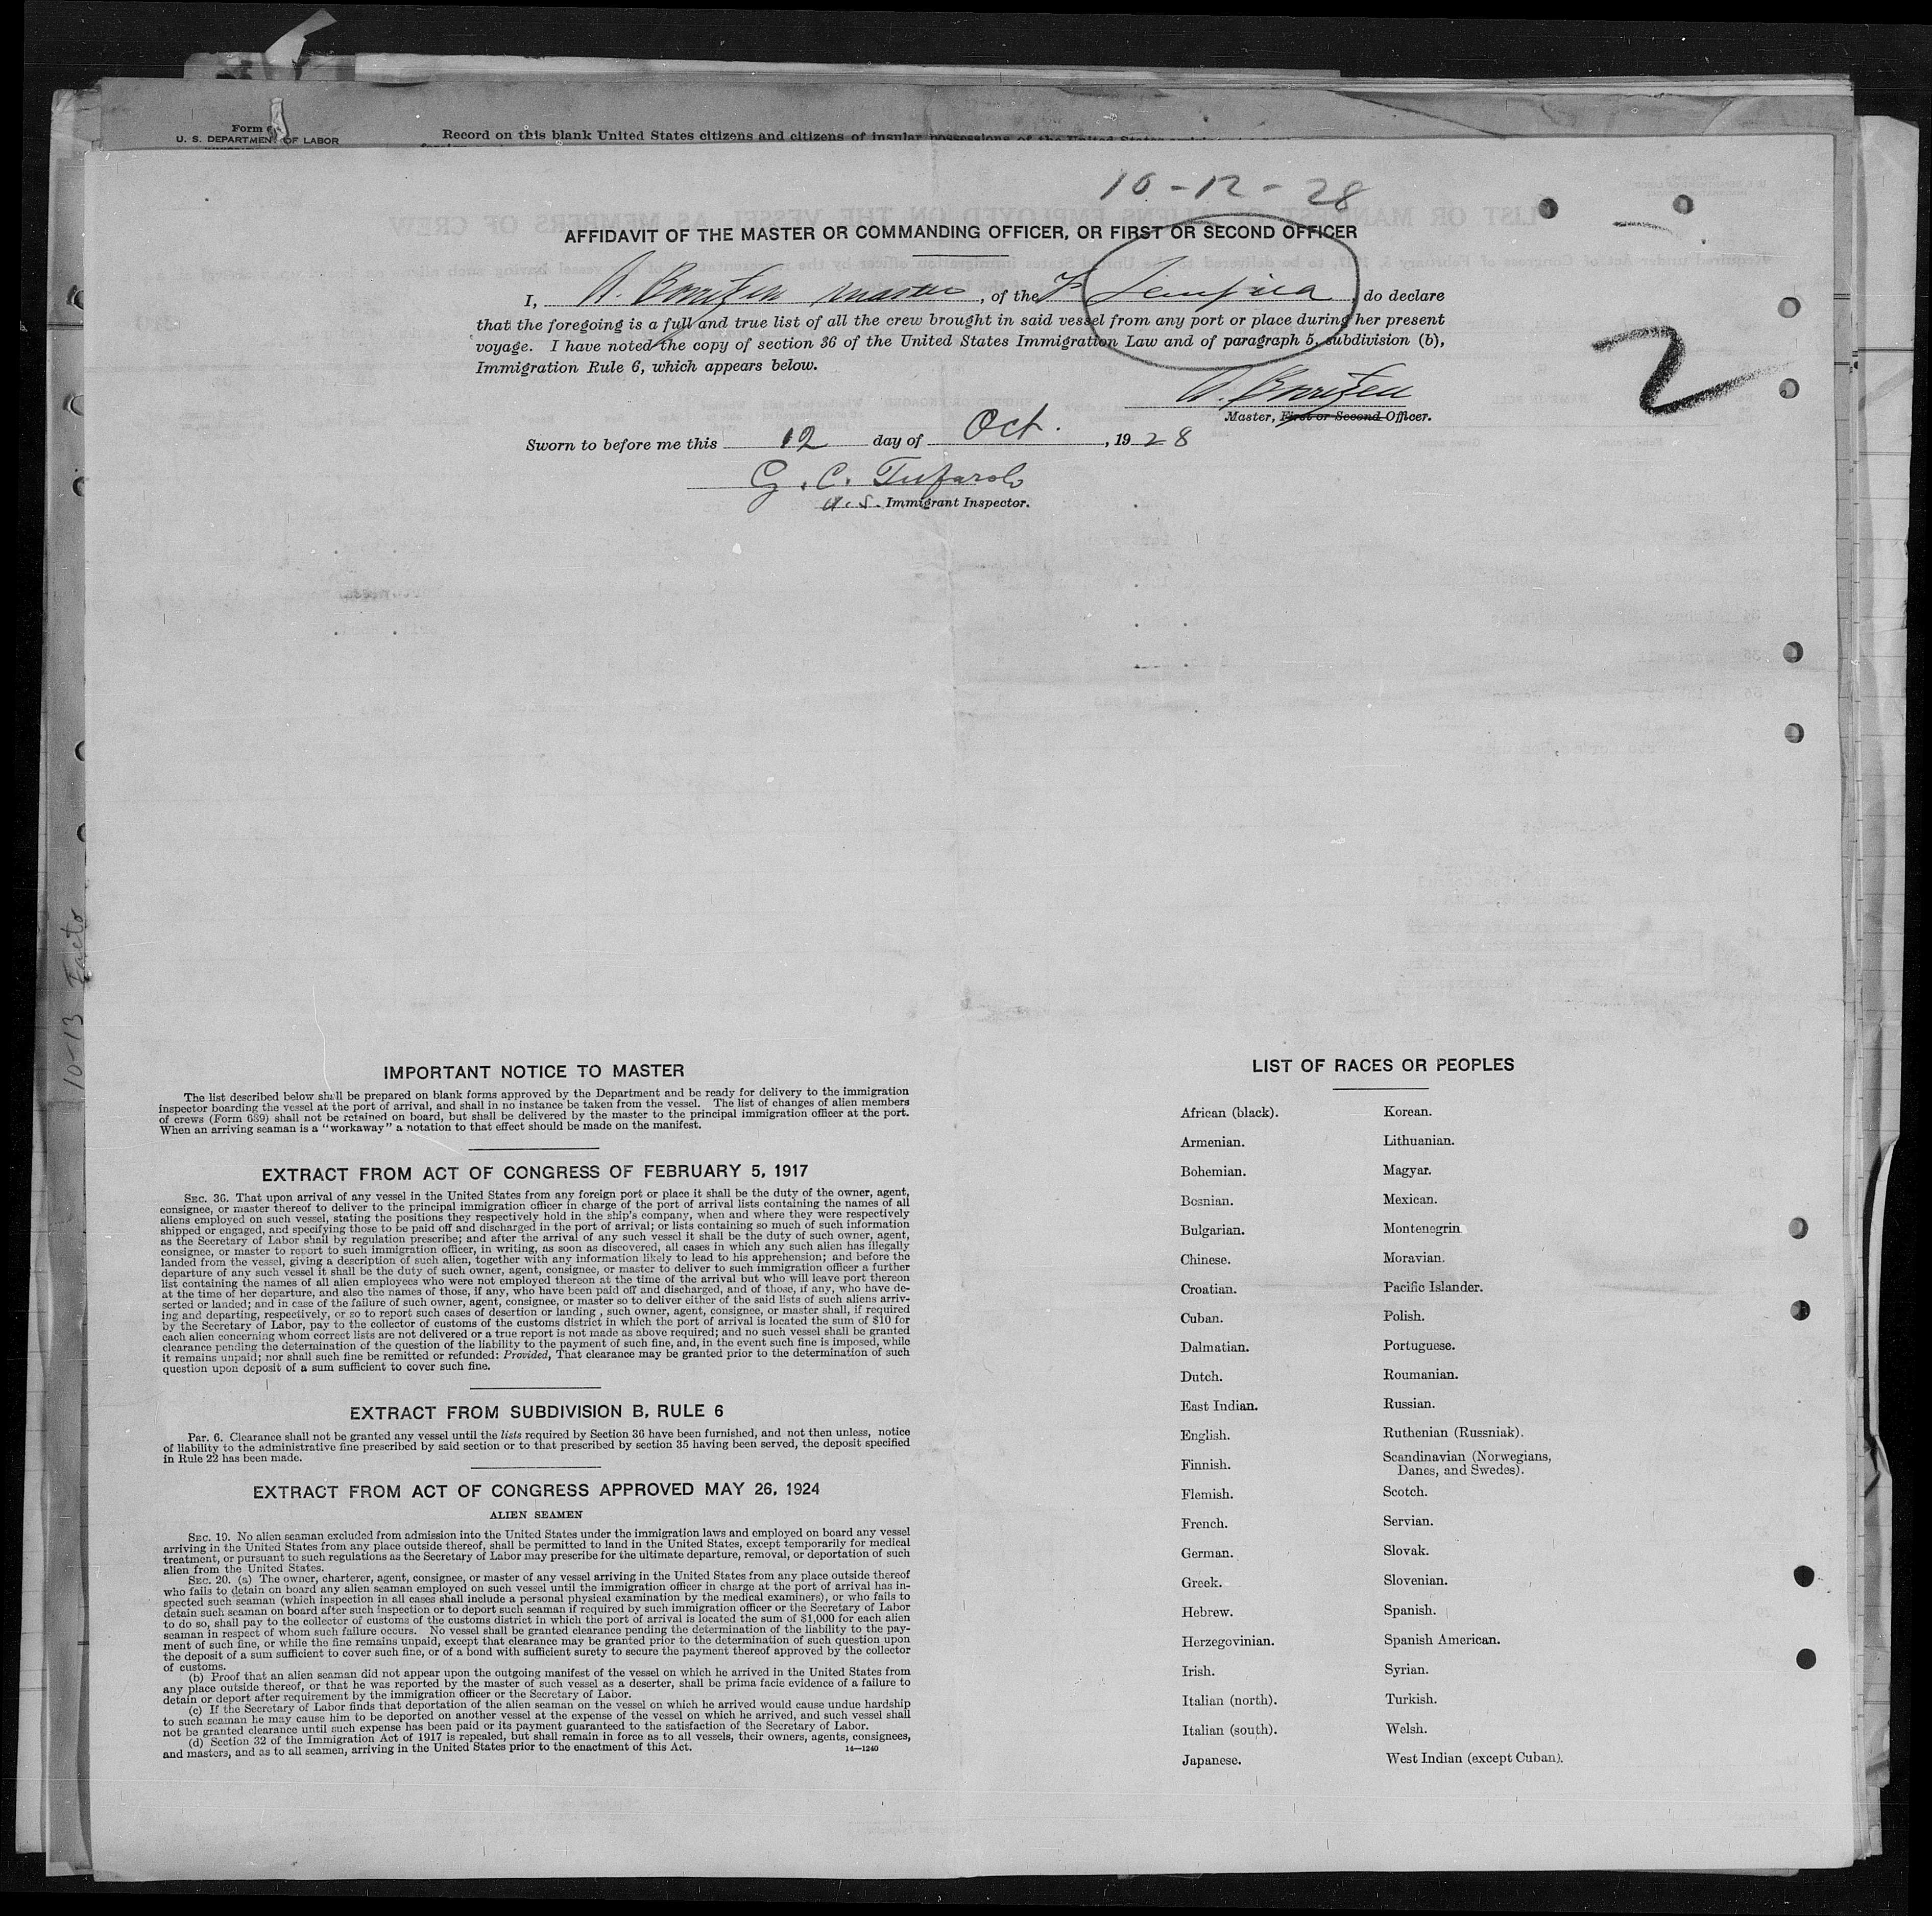 Form
U. S. DEPARTMENT OF LABOR
Record on this blank United States citizens and citizens of insular possessions of the United States
10-12-28
AFFIDAVIT OF THE MASTER OR COMMANDING OFFICER, OR FIRST OR SECOND OFFICER
I, A. master, of the do declare
that the foregoing is a full and true list of all the crew brought in said vessel from any port or place during her present
voyage. I have noted the copy of section 36 of the United States Immigration Law and of paragraph 5, subdivision (b),
Immigration Rule 6, which appears below.
2
A.
Master, First or Second Officer.
Sworn to before me this 12 day of Oct., 1928
G. C. Tufarolo
U.S. Immigrant Inspector.
10-13
IMPORTANT NOTICE TO MASTER
The list described below shall be prepared on blank forms approved by the Department and be ready for delivery to the immigration
inspector boarding the vessel at the port of arrival, and shall in no instance be taken from the vessel. The list of changes of alien members
of crews (Form 689) shall not be retained on board, but shall be delivered by the master to the principal immigration officer at the port.
When an arriving seaman is a "workaway" a notation to that effect should be made on the manifest.
EXTRACT FROM ACT OF CONGRESS OF FEBRUARY 5, 1917
SEC. 36. That upon arrival of any vessel in the United States from any foreign port or place it shall be the duty of the owner, agent,
consignee, or master thereof to deliver to the principal immigration officer in charge of the port of arrival lists containing the names of all
aliens employed on such vessel, stating the positions they respectively hold in the ship's company, when and where they were respectively
shipped or engaged, and specifying those to be paid off and discharged in the port of arrival; or lists containing so much of such information
as the Secretary of Labor shall by regulation prescribe; and after the arrival of any such vessel it shall be the duty of such owner, agent,
consignee, or master to report to such immigration officer, in writing, as soon as discovered, all cases in which any such alien has illegally
landed from the vessel, giving a description of such alien, together with any information likely to lead to his apprehension; and before the
departure of any such vessel it shall be the duty of such owner, agent, consignee, or master to deliver to such immigration officer a further
list containing the names of all alien employees who were not employed thereon at the time of the arrival but who will leave port thereon
at the time of her departure, and also the names of those, if any, who have been paid off and discharged, and of those, if any, who have de-
serted or landed; and in case of the failure of such owner, agent, consignee, or master so to deliver either of the said lists of such aliens arriv-
ing and departing, respectively, or so to report such cases of desertion or landing, such owner, agent, consignee, or master shall, if required
by the Secretary of Labor, pay to the collector of customs of the customs district in which the port of arrival is located the sum of $10 for
each alien concerning whom correct lists are not delivered or a true report is not made as above required; and no such vessel shall be granted
clearance pending the determination of the question of the liability to the payment of such fine, and, in the event such fine is imposed, while
it remains unpaid; nor shall such fine be remitted or refunded: Provided, That clearance may be granted prior to the determination of such
question upon deposit of a sum sufficient to cover such fine.
EXTRACT FROM SUBDIVISION B, RULE 6
Par. 6. Clearance shall not be granted any vessel until the lists required by Section 36 have been furnished, and not then unless, notice
of liability to the administrative fine prescribed by said section or to that prescribed by section 35 having been served, the deposit specified
in Rule 22 has been made.
EXTRACT FROM ACT OF CONGRESS APPROVED MAY 26, 1924
ALIEN SEAMEN
SEC. 19. No alien seaman excluded from admission into the United States under the immigration laws and employed on board any vessel
arriving in the United States from any place outside thereof, shall be permitted to land in the United States, except temporarily for medical
treatment, or pursuant to such regulations as the Secretary of Labor may prescribe for the ultimate departure, removal, or deportation of such
alien from the United States.
SEC. 20. (a) The owner, charterer, agent, consignee, or master of any vessel arriving in the United States from any place outside thereof
who fails to detain on board any alien seaman employed on such vessel until the immigration officer in charge at the port of arrival has in-
spected such seaman (which inspection in all cases shall include a personal physical examination by the medical examiners), or who fails to
detain such seaman on board after such inspection or to deport such seaman if required by such immigration officer or the Secretary of Labor
to do so, shall pay to the collector of customs of the customs district in which the port of arrival is located the sum of $1,000 for each alien
seaman in respect of whom such failure occurs. No vessel shall be granted clearance pending the determination of the liability to the pay-
ment of such fine, or while the fine remains unpaid, except that clearance may be granted prior to the determination of such question upon
the deposit of a sum sufficient to cover such fine, or of a bond with sufficient surety to secure the payment thereof approved by the collector
of customs.
(b) Proof that an alien seaman did not appear upon the outgoing manifest of the vessel on which he arrived in the United States from
any place outside thereof, or that he was reported by the master of such vessel as a deserter, shall be prima facie evidence of a failure to
detain or deport after requirement by the immigration officer or the Secretary of Labor.
(c) If the Secretary of Labor finds that deportation of the alien seaman on the vessel on which he arrived would cause undue hardship
to such seaman he may cause him to be deported on another vessel at the expense of the vessel on which he arrived, and such vessel shall
not be granted clearance until such expense has been paid or its payment guaranteed to the satisfaction of the Secretary of Labor.
(d) Section 32 of the Immigration Act of 1917 is repealed, but shall remain in force as to all vessels, their owners, agents, consignees,
and masters, and as to all seamen, arriving in the United States prior to the enactment of this Act.
14—1240
LIST OF RACES OR PEOPLES
African (black).
Armenian.
Bohemian.
Bosnian.
Bulgarian.
Chinese.
Croatian.
Cuban.
Dalmatian.
Dutch.
East Indian.
English.
Finnish.
Flemish.
French.
German.
Greek.
Hebrew.
Herzegovinian.
Irish.
Italian (north).
Italian (south).
Japanese.
Korean.
Lithuanian.
Magyar.
Mexican.
Montenegrin
Moravian.
Pacific Islander.
Polish.
Portuguese.
Roumanian.
Russian.
Ruthenian (Russniak).
Scandinavian (Norwegians,
Danes, and Swedes).
Scotch.
Servian.
Slovak.
Slovenian.
Spanish.
Spanish American.
Syrian.
Turkish.
Welsh.
West Indian (except Cuban).